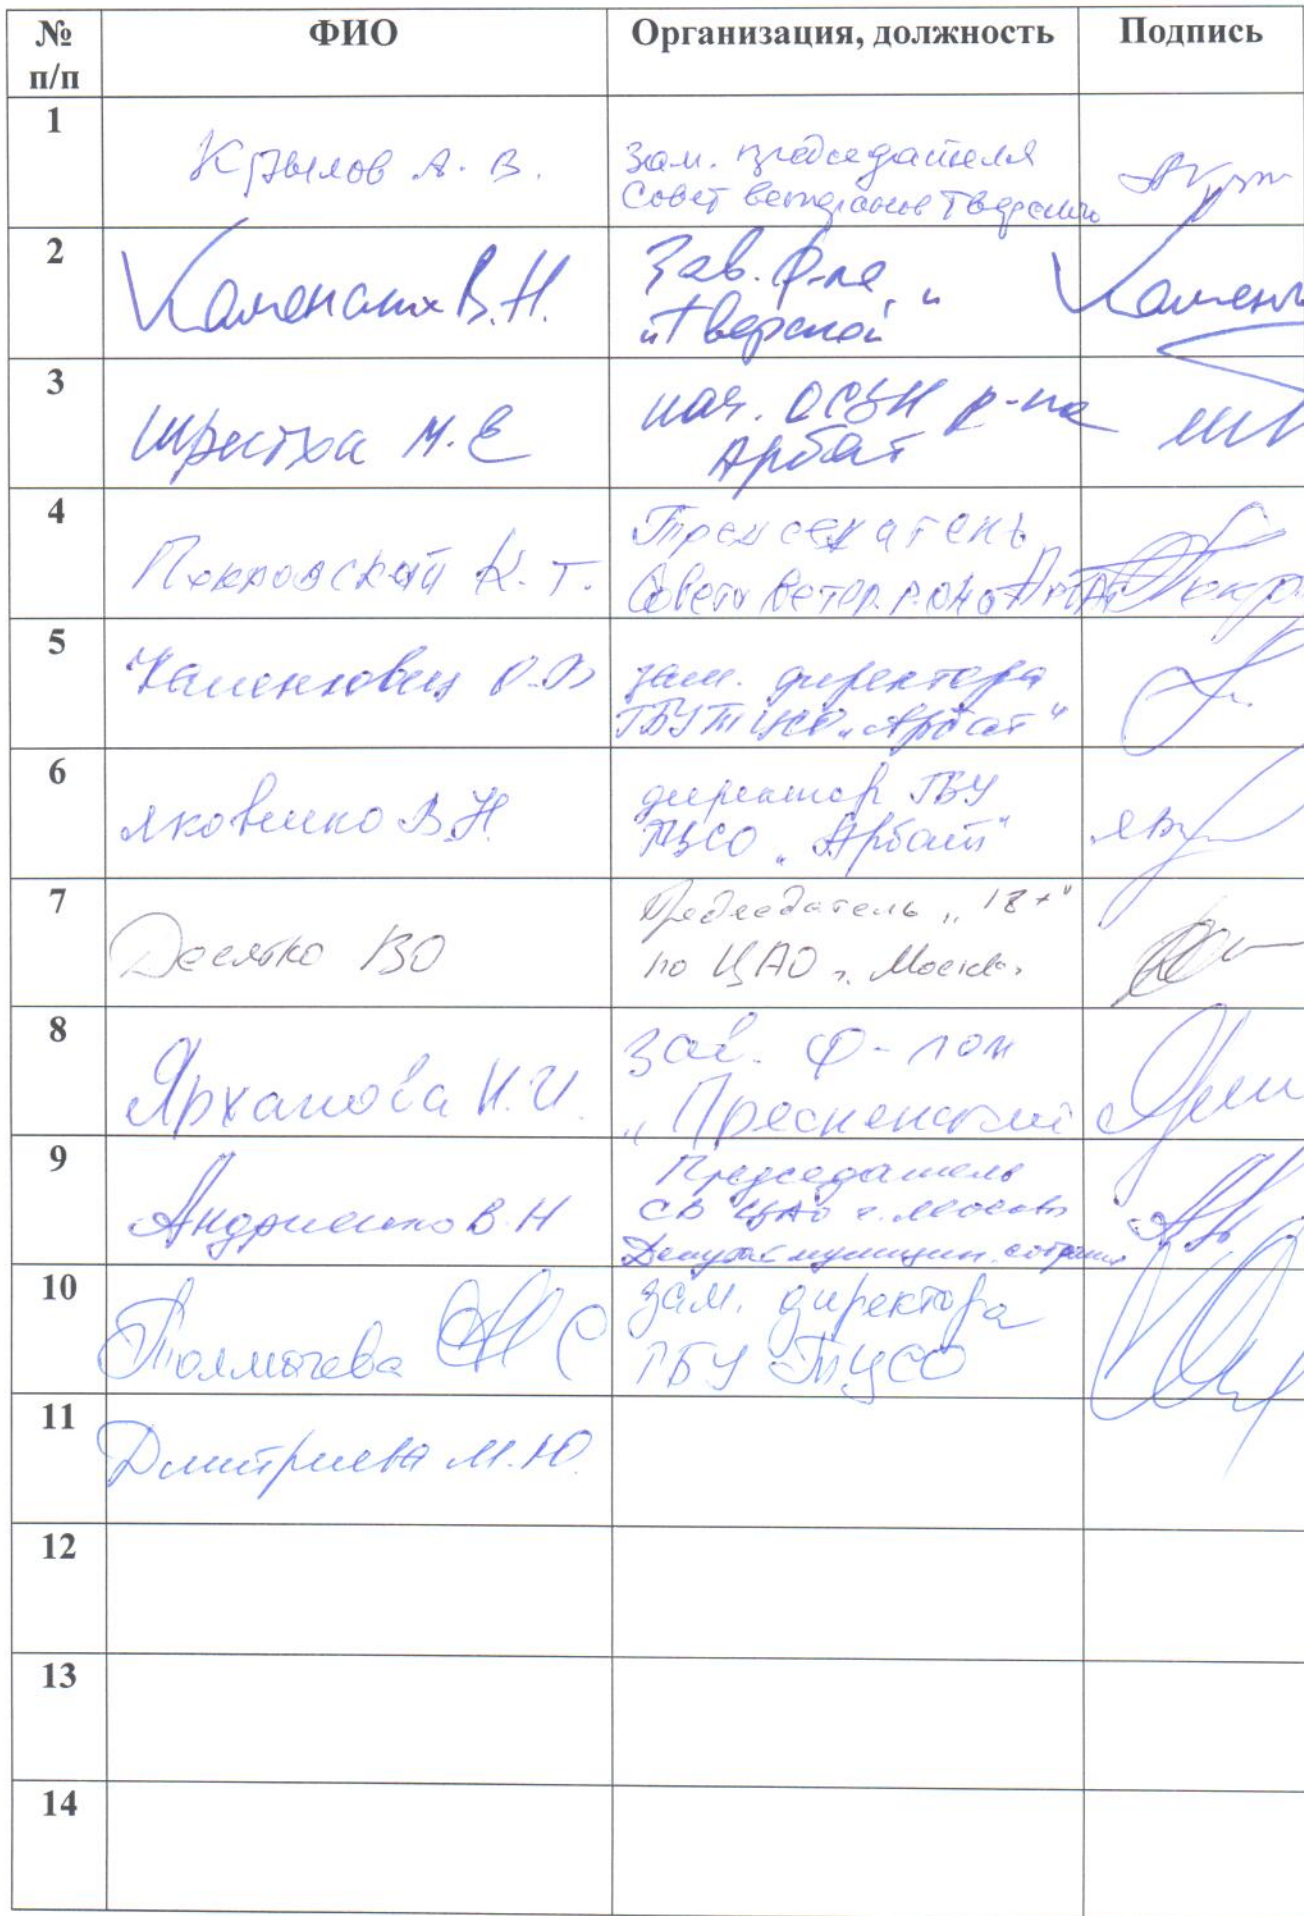 № п/п ФИО Организация, должность Подпись
1 Крылов А. В. Зам. председателя
Совет ветеранов Тверской
2 Каменских В.Н. Зав. ф-ла
"Тверской"
3 Шрестха М. Е нач. ОСЗН р-на
Арбат
4 Покровский К. Т.
Совета ветер. р-она Арбат
5 Каменковец О.В зам. директора
ГБУ ТЦСО „Арбат"
6 Яковенко В.Н. директор ГБУ
ТЦСО „Арбат"
7 Десятко ВО Председатель „18+"
по ЦАО г. Москвы
8 Ярханова Н.И. Зав. ф-лом
„Пресненский
9 Андриенко В.Н Председатель
СВ ЦАО г. Москвы
Депутат муницип. собрания
10 Толмачева С зам. директора
ГБУ ТЦСО
11 Дмитриева М.Ю.
12
13
14